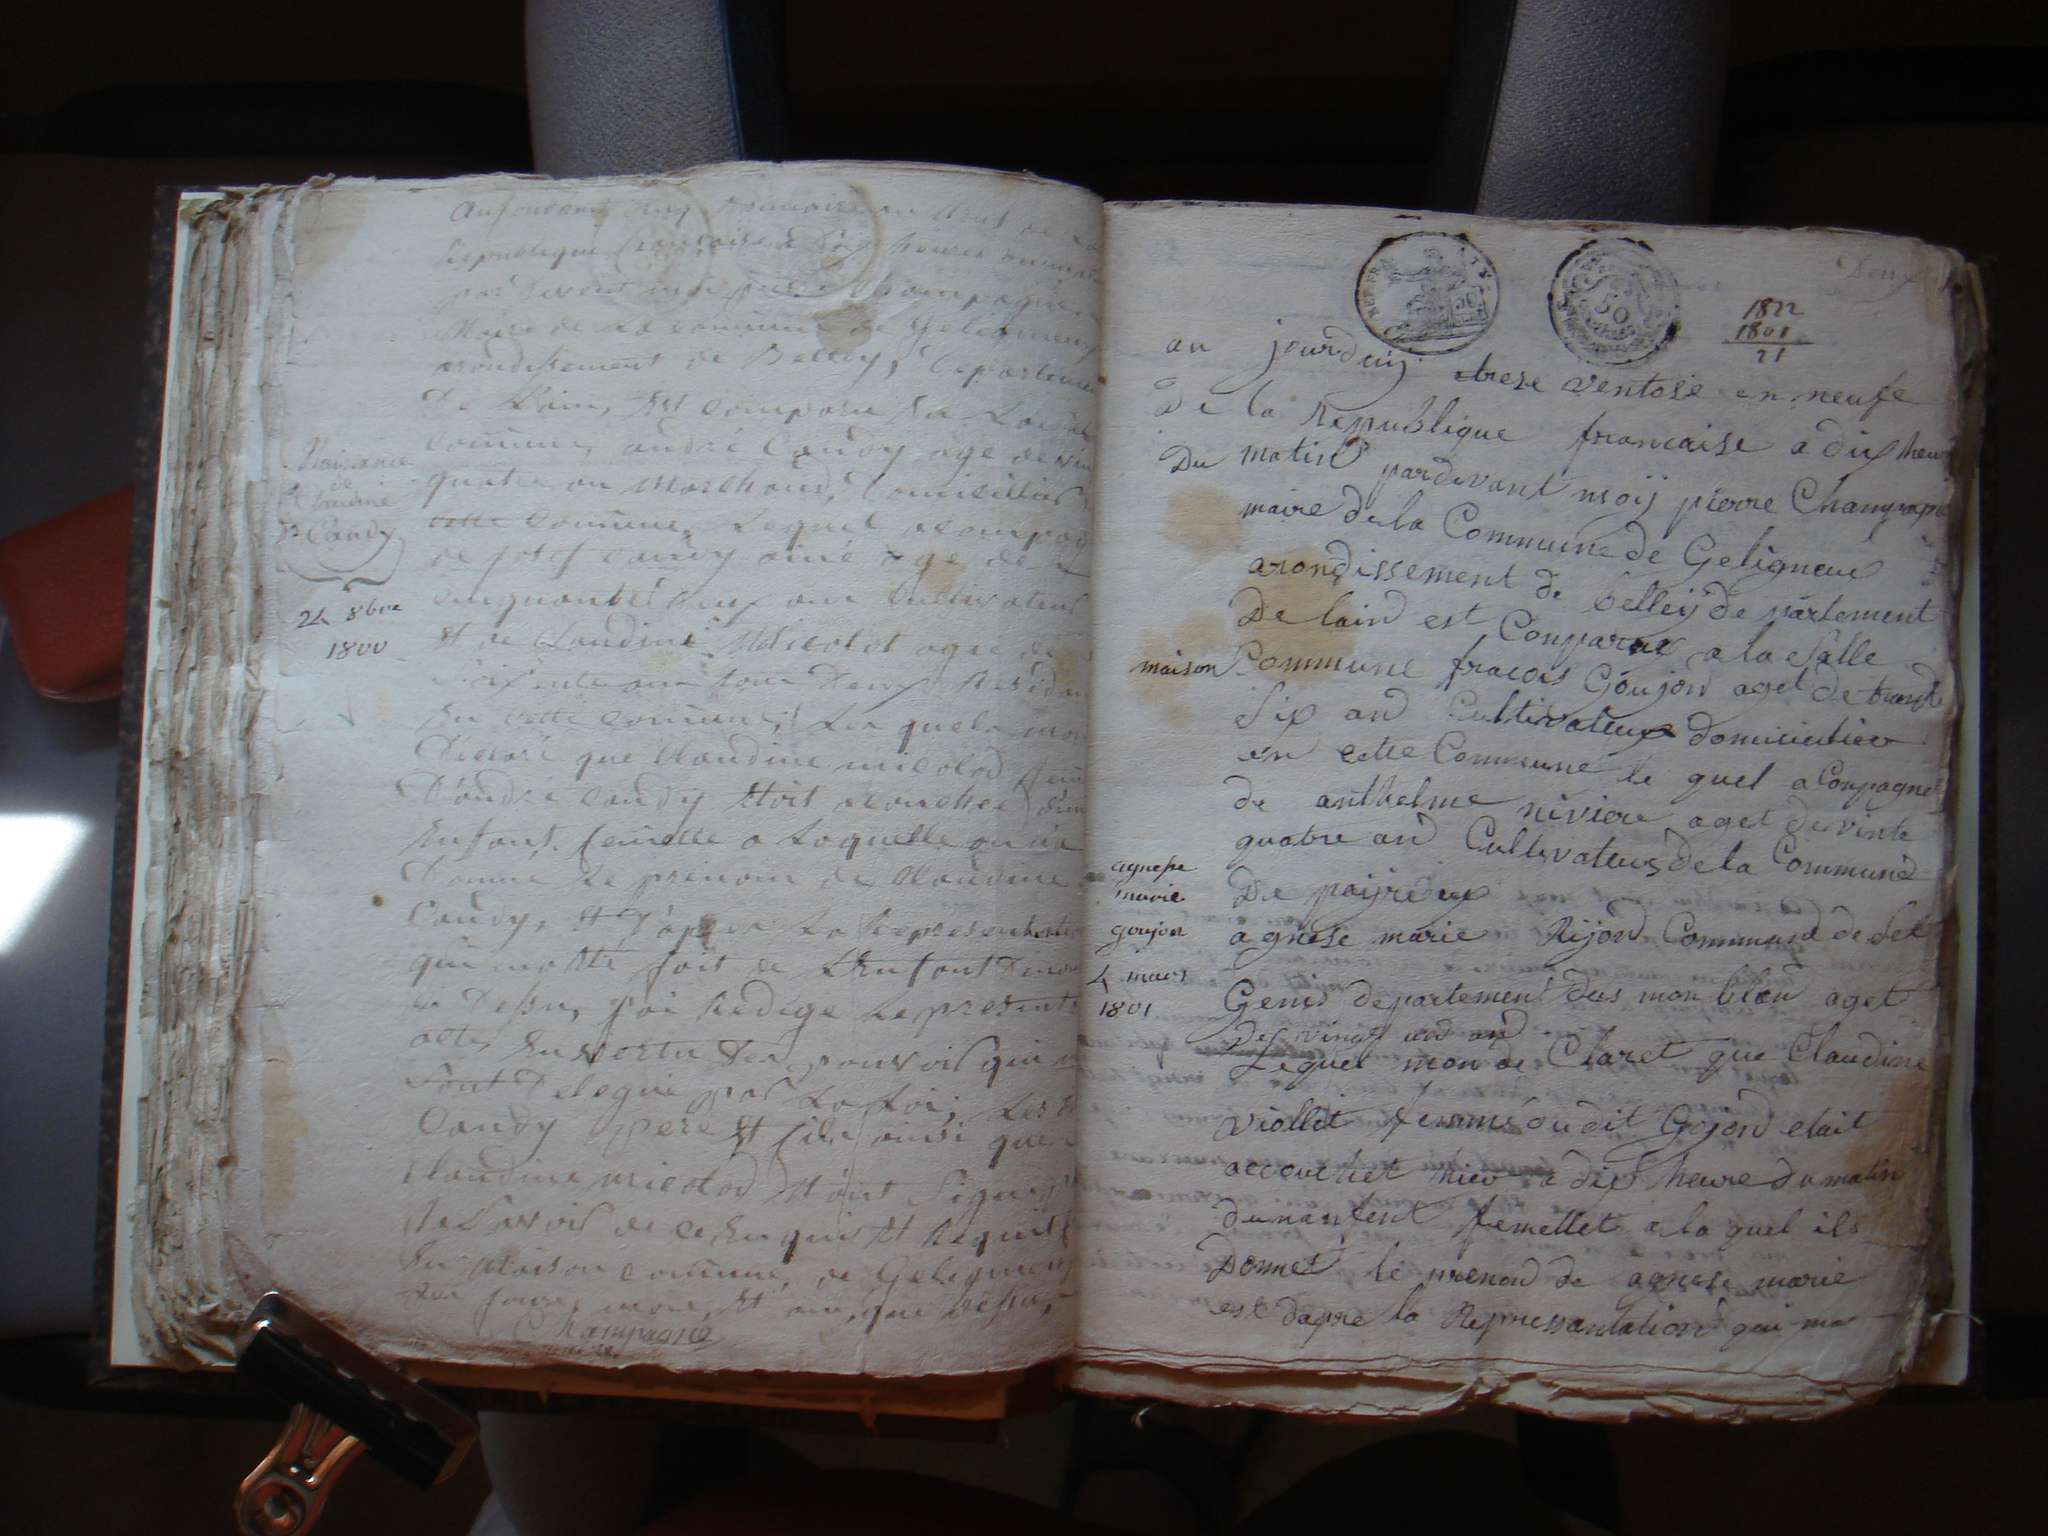 République française à dix heures du matin
par devent moi pierre Champagne
Maire de la commune de Geligneux
arondissement de Belley, Départemen
De L'ain, Est comparu En La Sale
Commune, andré Candy age de vin
quatre an Marchand, Domicilié
cette Commune, Lequel acompag
de josef Candy ainé age de
cinquante an Cultivateur
Et de Claudine Micolod agée de
Soixente an tous Deux Résidan
En cette commune, Les quels mon
Declaré que Claudine micolod fem
D'andré Candy Etoit acouchee d'un
Enfant femelle a Laquelle on a
Donné Le prénom de Claudine
Candy, Et d'apres La Representation
qui ma été fait de L'Enfant Denom
ci Dessu, j'ai Rédigé Le present
acte En vertu Des pouvoir qui m
sont Delegué par La Loi, Les
Candy pere Et fils ainsi que
Claudine micolod n'ont Signé
de ce Enquis Et Requis
En Maison commune, de Geligneux
Les jour, moi, Et an, que dessu,
Champagne
Naissance
de
Claudine
Candy
24 8bre
1800
1822
1801
21
50
au jourduij treze ventose en neufe
De la Republique francaise a dix heur
Du matin pardevant moij pierre Champagne
maire de la Commune de Geligneux
arondissement de belleij departement
De lain est Comparue a la Salle
maison Commune fracois Goujon aget de trante
Six and Cultivateur domicielier
en cette Commune le quel aConpagnet
de anthelme riviere aget de vinte
quatre and Cultivateur de la Commune
De peijrieux
agnese marie Rijond Commune de Set
Genis departement dus mon bland aget
Des vingt und and
Lequel mon de Claret que Claudine
viollet femme du dit Gojond etait
accouchet hier a dix heure du matin
dunanfent femellet a la quel ils
Donnet le prenond de agnese marie
est dapre la Represantation qui ma
agnesse
marie
goujon
4 mars
1801